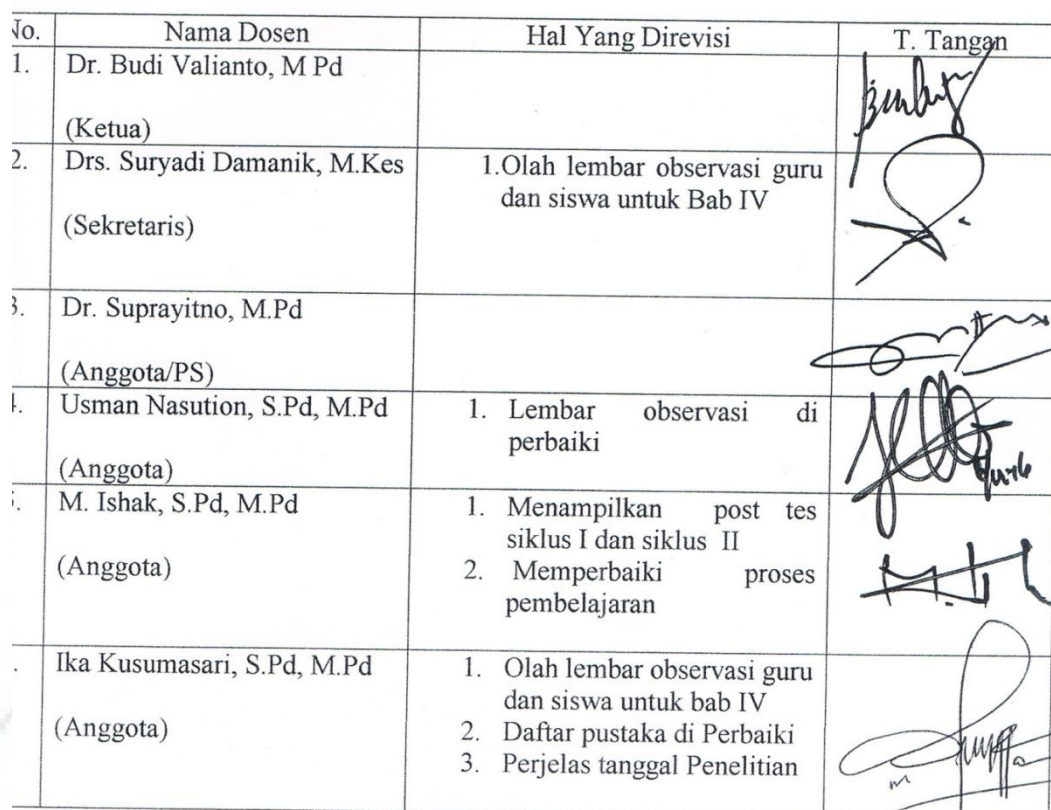 No. Nama Dosen Hal Yang Direvisi T. Tangan
1. Dr. Budi Valianto, M Pd
(Ketua)
2. Drs. Suryadi Damanik, M.Kes 1.Olah lembar observasi guru
dan siswa untuk Bab IV
(Sekretaris)
3. Dr. Suprayitno, M.Pd
(Anggota/PS)
4. Usman Nasution, S.Pd, M.Pd 1. Lembar observasi di
perbaiki
(Anggota)
5. M. Ishak, S.Pd, M.Pd 1. Menampilkan post tes
siklus I dan siklus II
(Anggota) 2. Memperbaiki proses
pembelajaran
Ika Kusumasari, S.Pd, M.Pd 1. Olah lembar observasi guru
dan siswa untuk bab IV
(Anggota) 2. Daftar pustaka di Perbaiki
3. Perjelas tanggal Penelitian